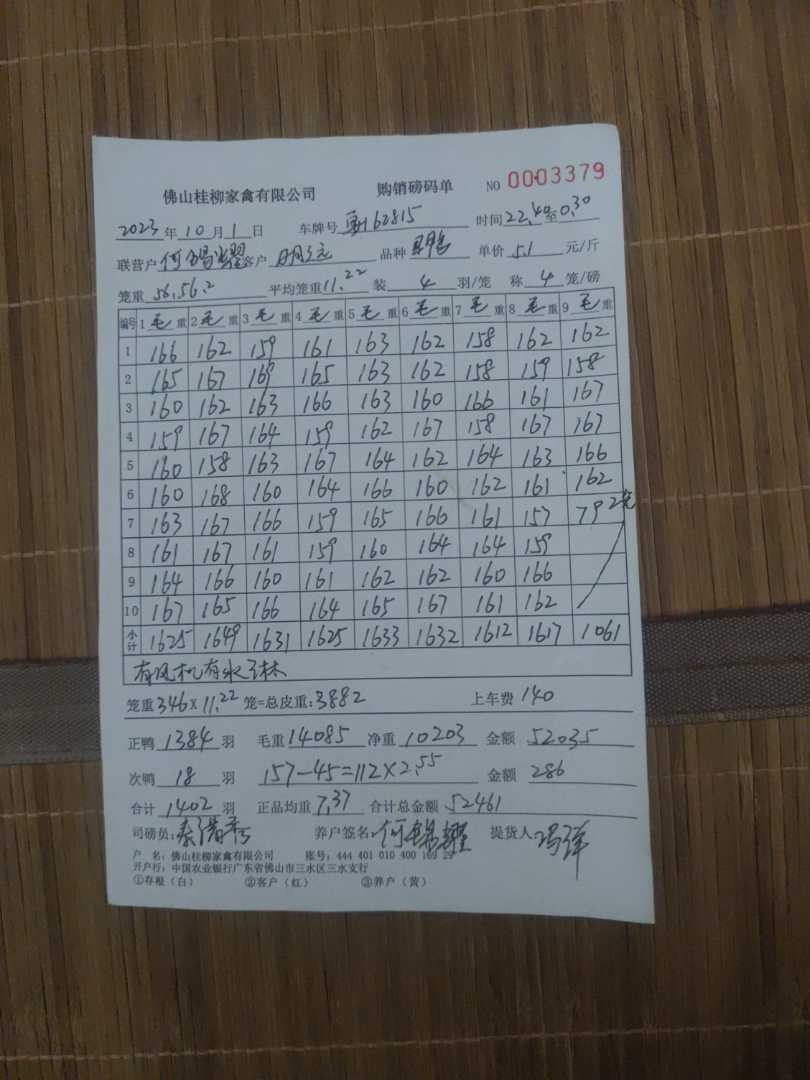 佛山桂柳家禽有限公司 购销磅码单 NO 0003379
2023 年 10 月 1 日 车牌号 62815 时间 22.40 至 0.30
联营户 何锦耀 客户 品种 单价 5.1 元/斤
笼重 56.56.2 平均笼重 11.22 装 4 羽/笼 称 4 笼/磅
编号 1 毛 重 2 毛 重 3 毛 重 4 毛 重 5 毛 重 6 毛 重 7 毛 重 8 毛 重 9 毛 重
1 166 162 159 161 163 162 158 162 162
2 165 167 169 165 163 162 158 159 158
3 160 162 163 166 163 160 166 161 167
4 159 167 164 159 162 167 158 167 167
5 160 158 163 167 164 162 164 163 166
6 160 168 160 164 166 160 162 161 162
7 163 167 166 159 165 166 161 157 79 2笼
8 161 167 161 159 160 164 164 159
9 164 166 160 161 162 162 160 166
10 167 165 166 164 165 167 161 162
小计 1625 1649 1631 1625 1633 1632 1612 1617 1061
有风机有水淋
笼重 346×11.22 笼=总皮重: 3882 上车费 140
正鸭 1384 羽 毛重 14085 净重 10203 金额 52035
次鸭 18 羽 157-45=112×2.55 金额 286
合计 1402 羽 正品均重 7.37 合计总金额 52461
司磅员: 养户签名: 何锦耀 提货人 冯锋
户 名: 佛山桂柳家禽有限公司 账号: 444 401 010 400 169 29
开户行: 中国农业银行广东省佛山市三水区三水支行
①存根（白） ②客户（红） ③养户（黄）